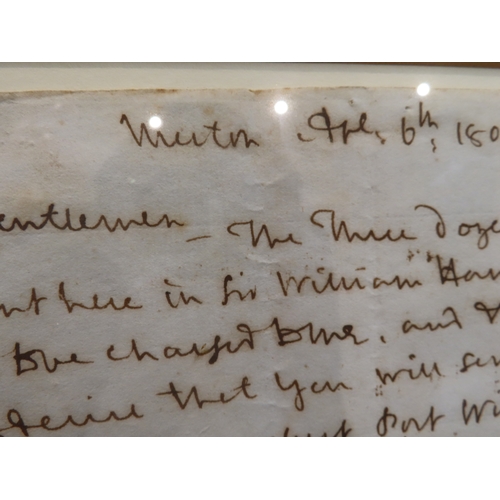 Merton Apl. 6th, 180
entlemen - The Three doze
nt here in Sir William Ham
to be charged to me, and
desire that you will sen
Port Wi